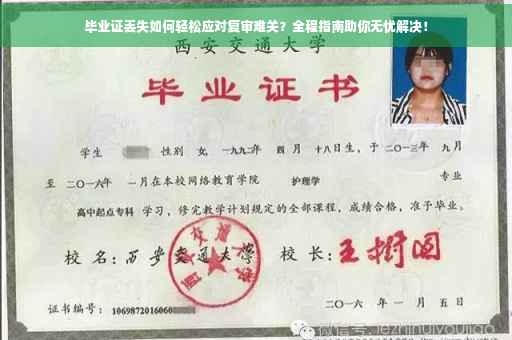 毕业证丢失如何轻松应对复审难关？全程指南助你无忧解决！
西安交通大学
毕业证书
学生 性别 女, 一九九二年 四月 十八日生, 于二〇一三年 九月
至 二〇一六年 一月在本校网络教育学院 护理学 专业
高中起点专科 学习, 修完教学计划规定的全部课程, 成绩合格, 准予毕业。
校名: 西安交通大学 校长: 王树国
西安交通大学
证书编号: 1069872016060
二〇一六 年 一 月 五 日
微信号: jezhihuiyoujiao